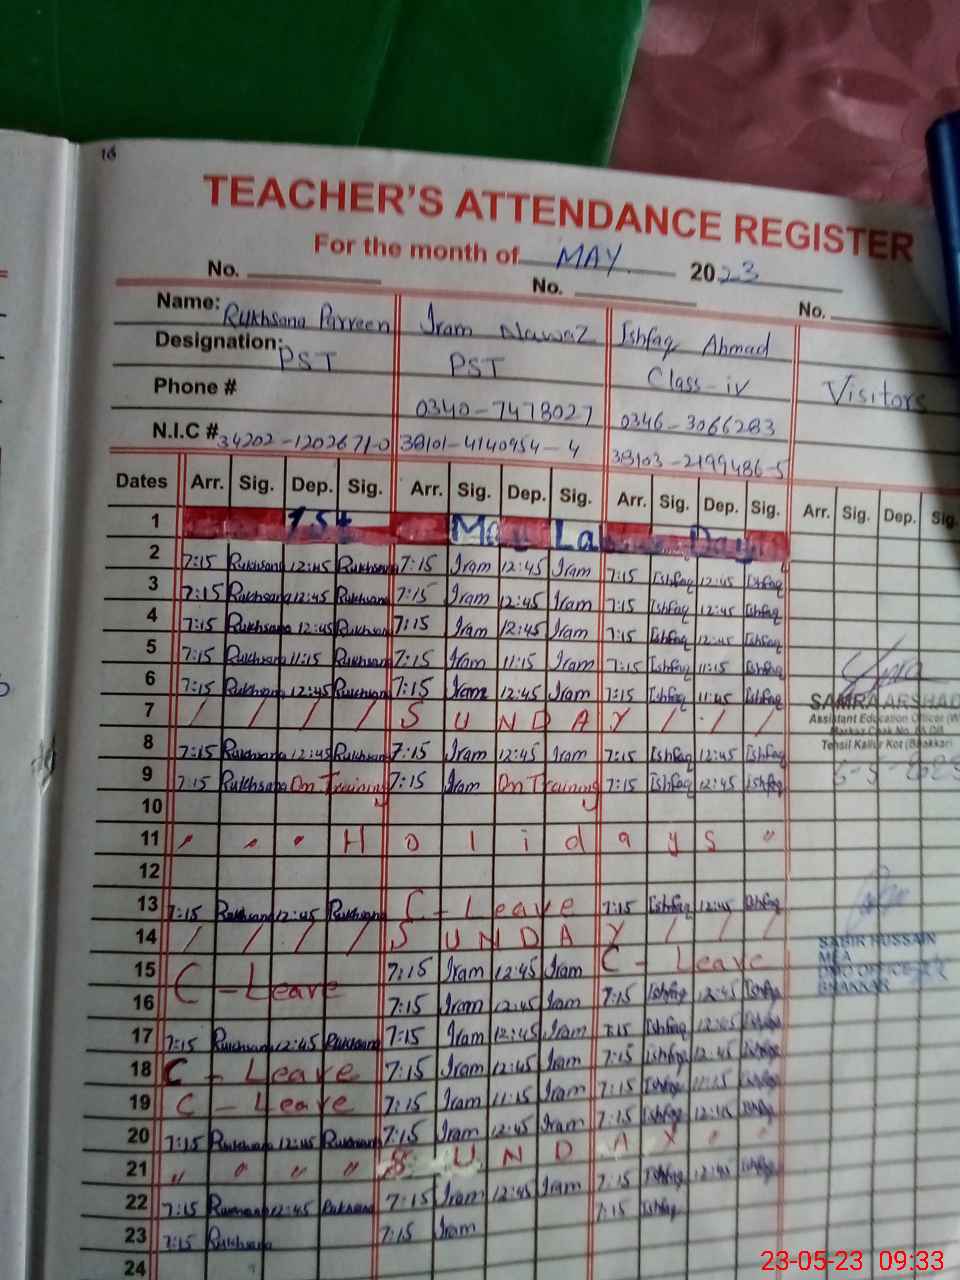 16
TEACHER'S ATTENDANCE REGISTER
For the month of MAY 2023
No. No. No.
Name: Rukhsana Parveen Iram Nawaz Ishfaq Ahmad
Designation: PST PST Class-iv Visitors
Phone # 0340-7478027 0346-3066283
N.I.C # 34202-1202671-0 38101-4140954-4 38103-2199486-5
Dates Arr. Sig. Dep. Sig. Arr. Sig. Dep. Sig. Arr. Sig. Dep. Sig. Arr. Sig. Dep. Sig.
1 1st May Labour Day
2 7:15 Rukhsana 12:45 Rukhsana 7:15 Iram 12:45 Iram 7:15 Ishfaq 12:45 Ishfaq
3 7:15 Rukhsana 12:45 Rukhsana 7:15 Iram 12:45 Iram 7:15 Ishfaq 12:45 Ishfaq
4 7:15 Rukhsana 12:45 Rukhsana 7:15 Iram 12:45 Iram 7:15 Ishfaq 12:45 Ishfaq
5 7:15 Rukhsana 11:15 Rukhsana 7:15 Iram 11:15 Iram 7:15 Ishfaq 11:15 Ishfaq
6 7:15 Rukhsana 12:45 Rukhsana 7:15 Iram 12:45 Iram 7:15 Ishfaq 11:45 Ishfaq
7 / / / / S U N D A Y / / /
8 7:15 Rukhsana 12:45 Rukhsana 7:15 Iram 12:45 Iram 7:15 Ishfaq 12:45 Ishfaq
9 7:15 Rukhsana On Training 7:15 Iram On Training 7:15 Ishfaq 12:45 Ishfaq
10
11 " " " H o l i d a y s "
12
13 7:15 Rukhsana 12:45 Rukhsana C - Leave 7:15 Ishfaq 12:45 Ishfaq
14 / / / / S U N D A Y / / /
15 C - Leave 7:15 Iram 12:45 Iram C - Leave
16 7:15 Iram 12:45 Iram 7:15 Ishfaq 12:45 Ishfaq
17 7:15 Rukhsana 12:45 Rukhsana 7:15 Iram 12:45 Iram 7:15 Ishfaq 12:45 Ishfaq
18 C - Leave 7:15 Iram 12:45 Iram 7:15 Ishfaq 12:45 Ishfaq
19 C - Leave 7:15 Iram 11:15 Iram 7:15 Ishfaq 11:15 Ishfaq
20 7:15 Rukhsana 12:45 Rukhsana 7:15 Iram 12:45 Iram 7:15 Ishfaq 12:45 Ishfaq
21 " " " " S U N D A Y " "
22 7:15 Rukhsana 12:45 Rukhsana 7:15 Iram 12:45 Iram 7:15 Ishfaq 12:45 Ishfaq
23 7:15 Rukhsana 7:15 Iram 7:15 Ishfaq
24
SAMRA ARSHAD
Assistant Education Officer (W
Markaz Chak No.
Tehsil Kallur Kot (Bhakkar)
6-5-2023
SABIR HUSSAIN
MEA
DMO OFFICE
BHAKKAR
23-05-23 09:33